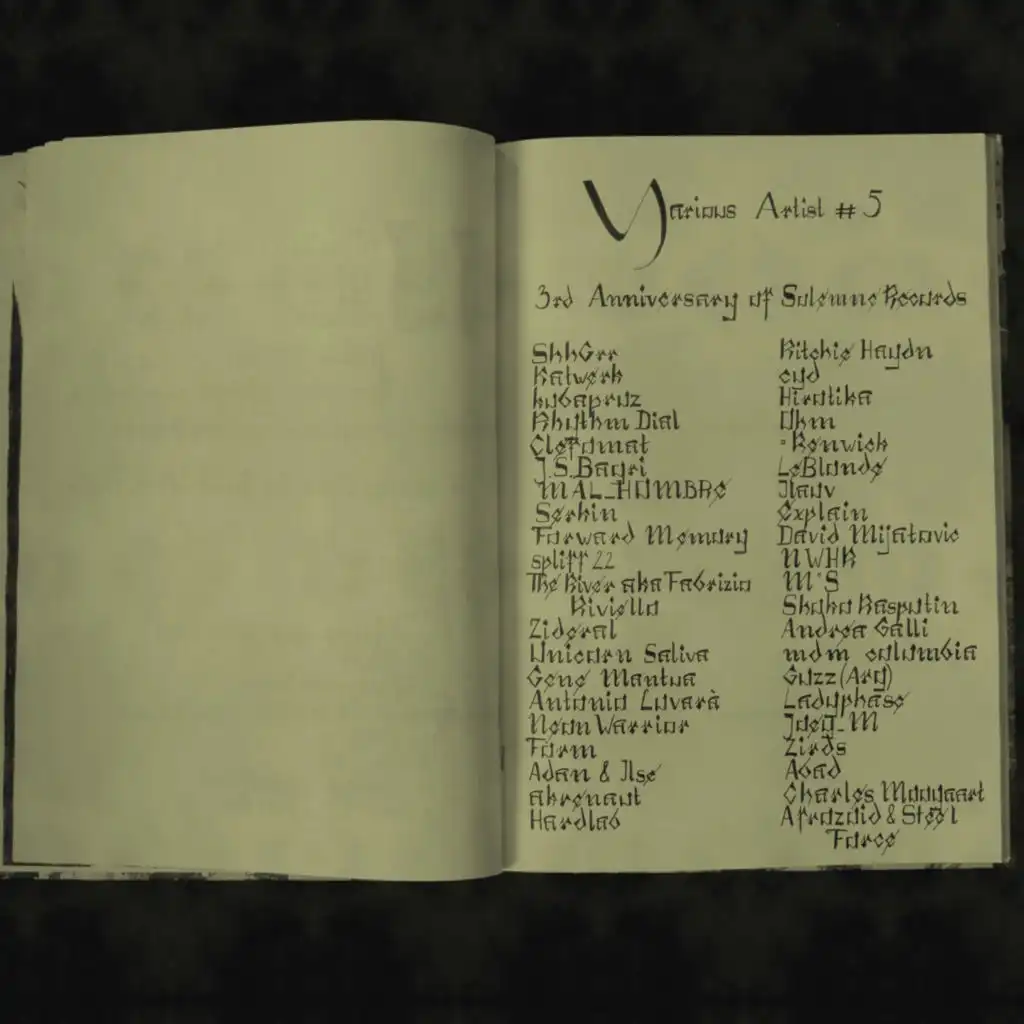 Various Artist # 5
3rd Anniversary of Solemne Records
ShhGrr
Katwerk
Rhythm Dial
Clefomat
J.S.Bagri
MAL_HOMBRE
Serkin
Forward Memory
spliff 22
The River aka Fabrizio
Riviello
Zideral
Unicorn Saliva
Gene Mantua
Antonio Lovarà
Neon Warrior
Form
Adan & Ilse
akronaut
Hardlab
Ritchie Haydn
cyd
Hirotika
Ohm
Renwick
LeBlonde
Explain
David Mijatovic
NWHR
M°S
Shako Rasputin
Andrea Galli
mdm columbia
Guzz (Arg)
Ladyphase
Joeq_M
Zirds
Abad
Charles Moogaart
Afrozoid & Steel
Force